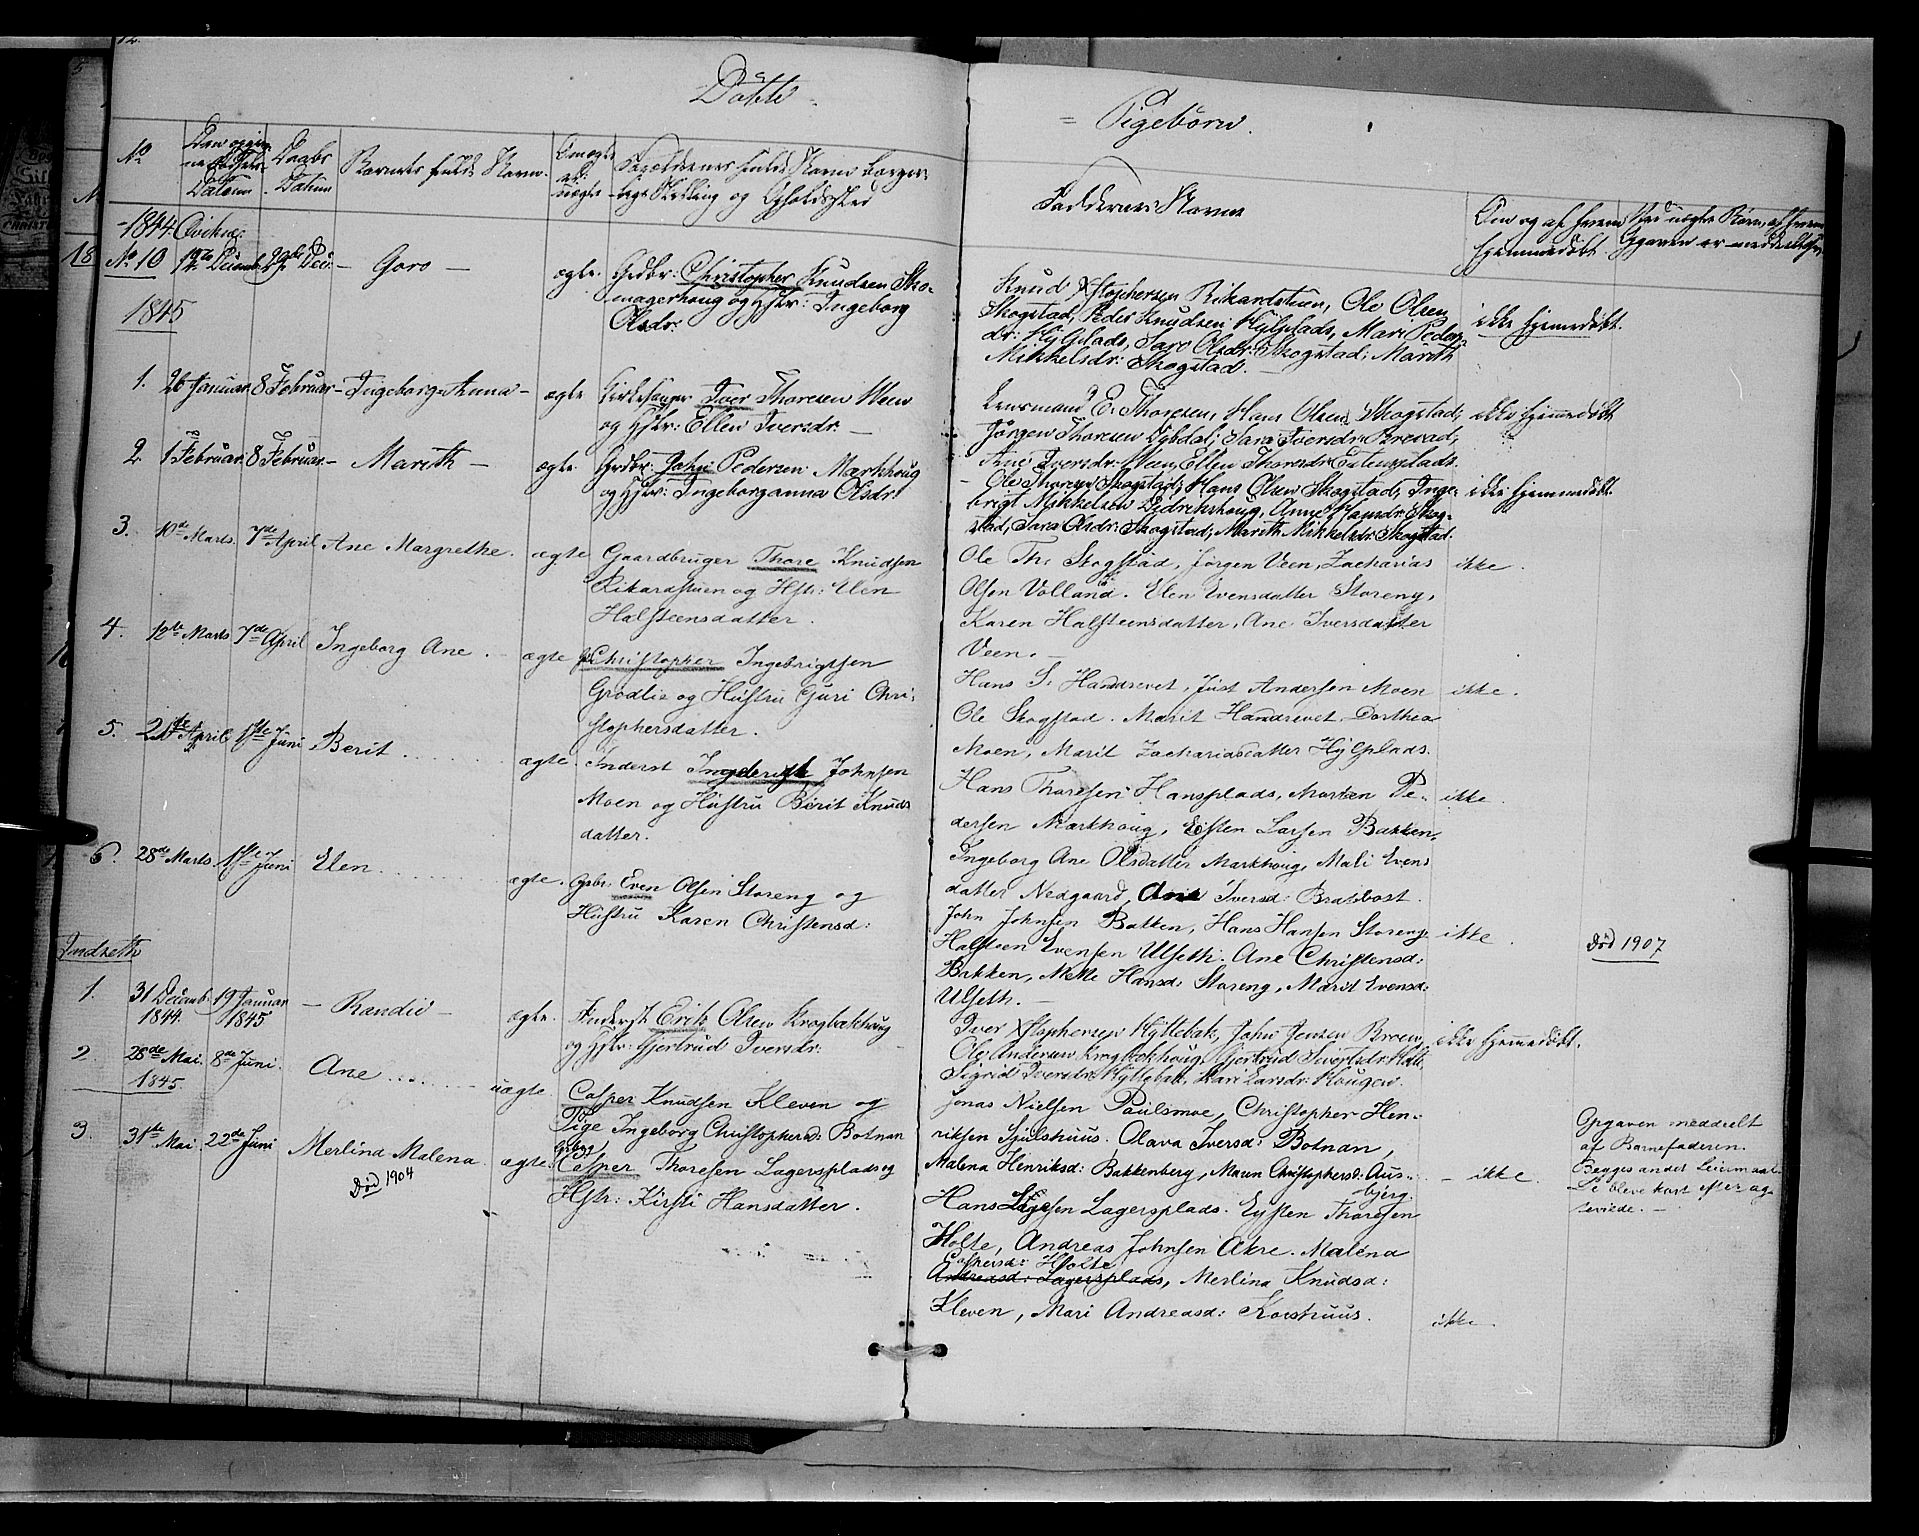 12.
Døbte
= Pigebörn.
No
Døbs Datum
Barnets fulde Navn.
Forældrenes fulde Navn Borger-
lige Stilling og Opholdssted
Faddernes Navne
Om og af hvem
hjemmedøbt.
1844 Qvikne:
No 10 Decemb. Dec. – Goro – ægte. Grdbr: Christopher Knudsen
og Hstr: Ingeborg
Olsdr:
Knud Xstophersen Rikardstuen, Ole Olsen
Skogstad, Peder Knudsen Hylplads, Mari Peders
dr: Hylplads, Sara Olsdr: Skogstad; Marith
Mikkelsdr: Skogstad. –
ikke hjemmedøbt.
1845
1. 26 Januar 8 Februar – Ingeborg-Anna – ægte Kirkesanger Iver Thoresen Ween
og Hstr: Ellen Iversdr. –
Lensmand E. Thoresen, Hans Olsen Skogstad;
Jörgen Thoresen
Ane Iversdr: Ween, Ellen Thoresdr:
ikke hjemmedøbt
2. 1 Februar 8 Februar – Marith – ægte. Grdbr: John Pedersen Markhoug
og Hstr: Ingeborganna Olsdr:
– Ole Thoresen Skogstad; Hans Olsen Skogstad, Inge-
brigt Mikkelsen Didrikshoug, Anne Hansdr: Skog-
stad, Sara Olsdr: Skogstad; Marith Mikkelsdr: Skogstad.
ikke hjemmedøbt.
3. 10de Marts. 7de April Ane Margrethe. ægte Gaardbruger Thore Knudsen
Rikardstuen og Hstr: Elen
Halsteensdatter.
Ole Th: Skogstad, Jörgen Veen, Zacharias
Olsen Volland. Elen Evensdatter Storeng,
Karen Halsteensdatter, Ane Iversdatter
Veen. –
ikke.
4. 12te Marts 7de April Ingeborg Ane. ægte Christopher Ingebrigtsen
Grödlie og Hustru Guri Chri-
stophersdatter.
Hans S. Haandrevet, Just Andersen Moen
Ole Skogstad. Marit Haandrevet. Dorthea
Moen, Marit Zachariasdatter Hylplads.
ikke.
5. 21de April 1ste Juni Berit ægte. Inderst Ingebrigt Johnsen
Moen og Hustru Berit Knuds
datter.
Hans Thoresen Hansplads, Morten Pe-
dersen Markhoug, Eisten Larsen Bakken,
Ingeborg Ane Olsdatter Markhoug, Mali Evens
datter Nedgaard, Ane Iversd: Bratbost.
ikke.
6. 28de Marts 1ste Juni Elen ægte. Grbr: Even Olsen Storeng og
Hustru Karen Christensd:
John Johnsen Bakken, Hans Hansen Storeng
Halsteen Evensen Ulseth. Ane Christensd:
Bakken, Mette Hansd: Storeng, Marit Evensd:
Ulseth. –
ikke.
Död 1907
Indseth
1. 31 Decemb. 1844. 19 Januar 1845 – Randie – ægte. Inderst Erik Olsen Krogbækhoug
og Hstr: Gjertrud Iversdr:
Iver Xstophersen Hyttebak, John Jensen Broen,
Ole Andersen Krogbækhoug, Gjertrud Sivertsdr:
Sigrid Iversdr: Hyttebak, Kari Larsdr: Hougen.
ikke hjemmedøbt.
2. 28de Mai. 1845. 8de Juni. Ane uægte Casper Knudsen Kleven og
Pige Ingeborg Christophersd: Botnan
Jonas Nielsen Paulsmoe, Christopher Hen-
riksen Sjulshuus. Olava Iversd: Botnan,
Malena Henriksd: Bakkenberg, Maren Christophersd: Aus-
bjerg.
– ikke.
Opgaven meddeelt
af Barnefaderen.
Begges andet Leiermaal.
De bleve kort efter æg-
teviede. –
3. 31te Mai. 22de Juni Merlina Malena. ægte. Casper Thoresen Lagersplads og
Hstr: Kirsti Hansdatter.
Död 1904
Hans Lagersplads. Eysten Thoresen
Holte, Andreas Johnsen Akre. Malena
Caspersd: Holte,
Andreasd: Lagersplads, Merlina Knudsd:
Kleven, Mari Andreasd: Korshuus.
ikke.